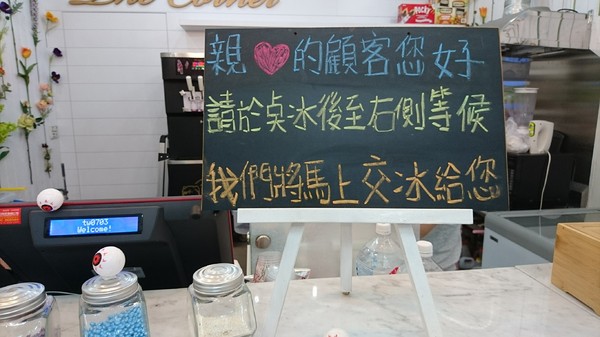 親❤的顧客您好
請於點冰後至右側等候
我們將馬上交冰給您
tw0703
Welcome!
Pocky